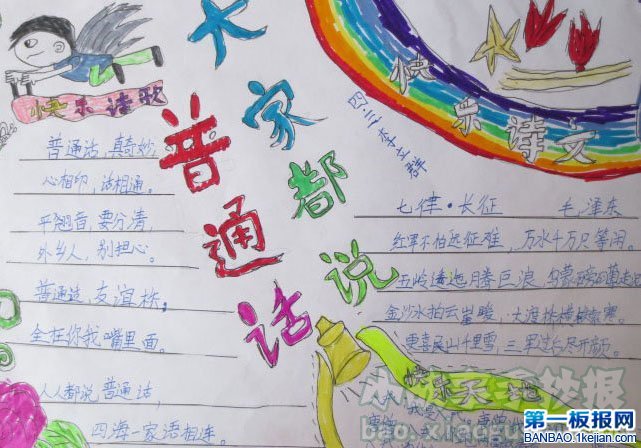 大家都说
普通话
快乐诗歌
普通话,真奇妙
心相印,话相通。
平翘音,要分清
外乡人,别担心。
普通话,友谊桥,
全在你我嘴里面。
人人都说普通话,
四海一家语相连。
快乐诗文
四三李立群
七律·长征 毛泽东
红军不怕远征难,万水千山只等闲。
五岭逶迤腾巨浪,乌蒙磅礴走
金沙水拍云崖暖,大渡桥横铁索寒。
更喜岷山千里雪,三军过后尽开颜。
快乐天地
第一板报网
BANBAO.1kejian.com